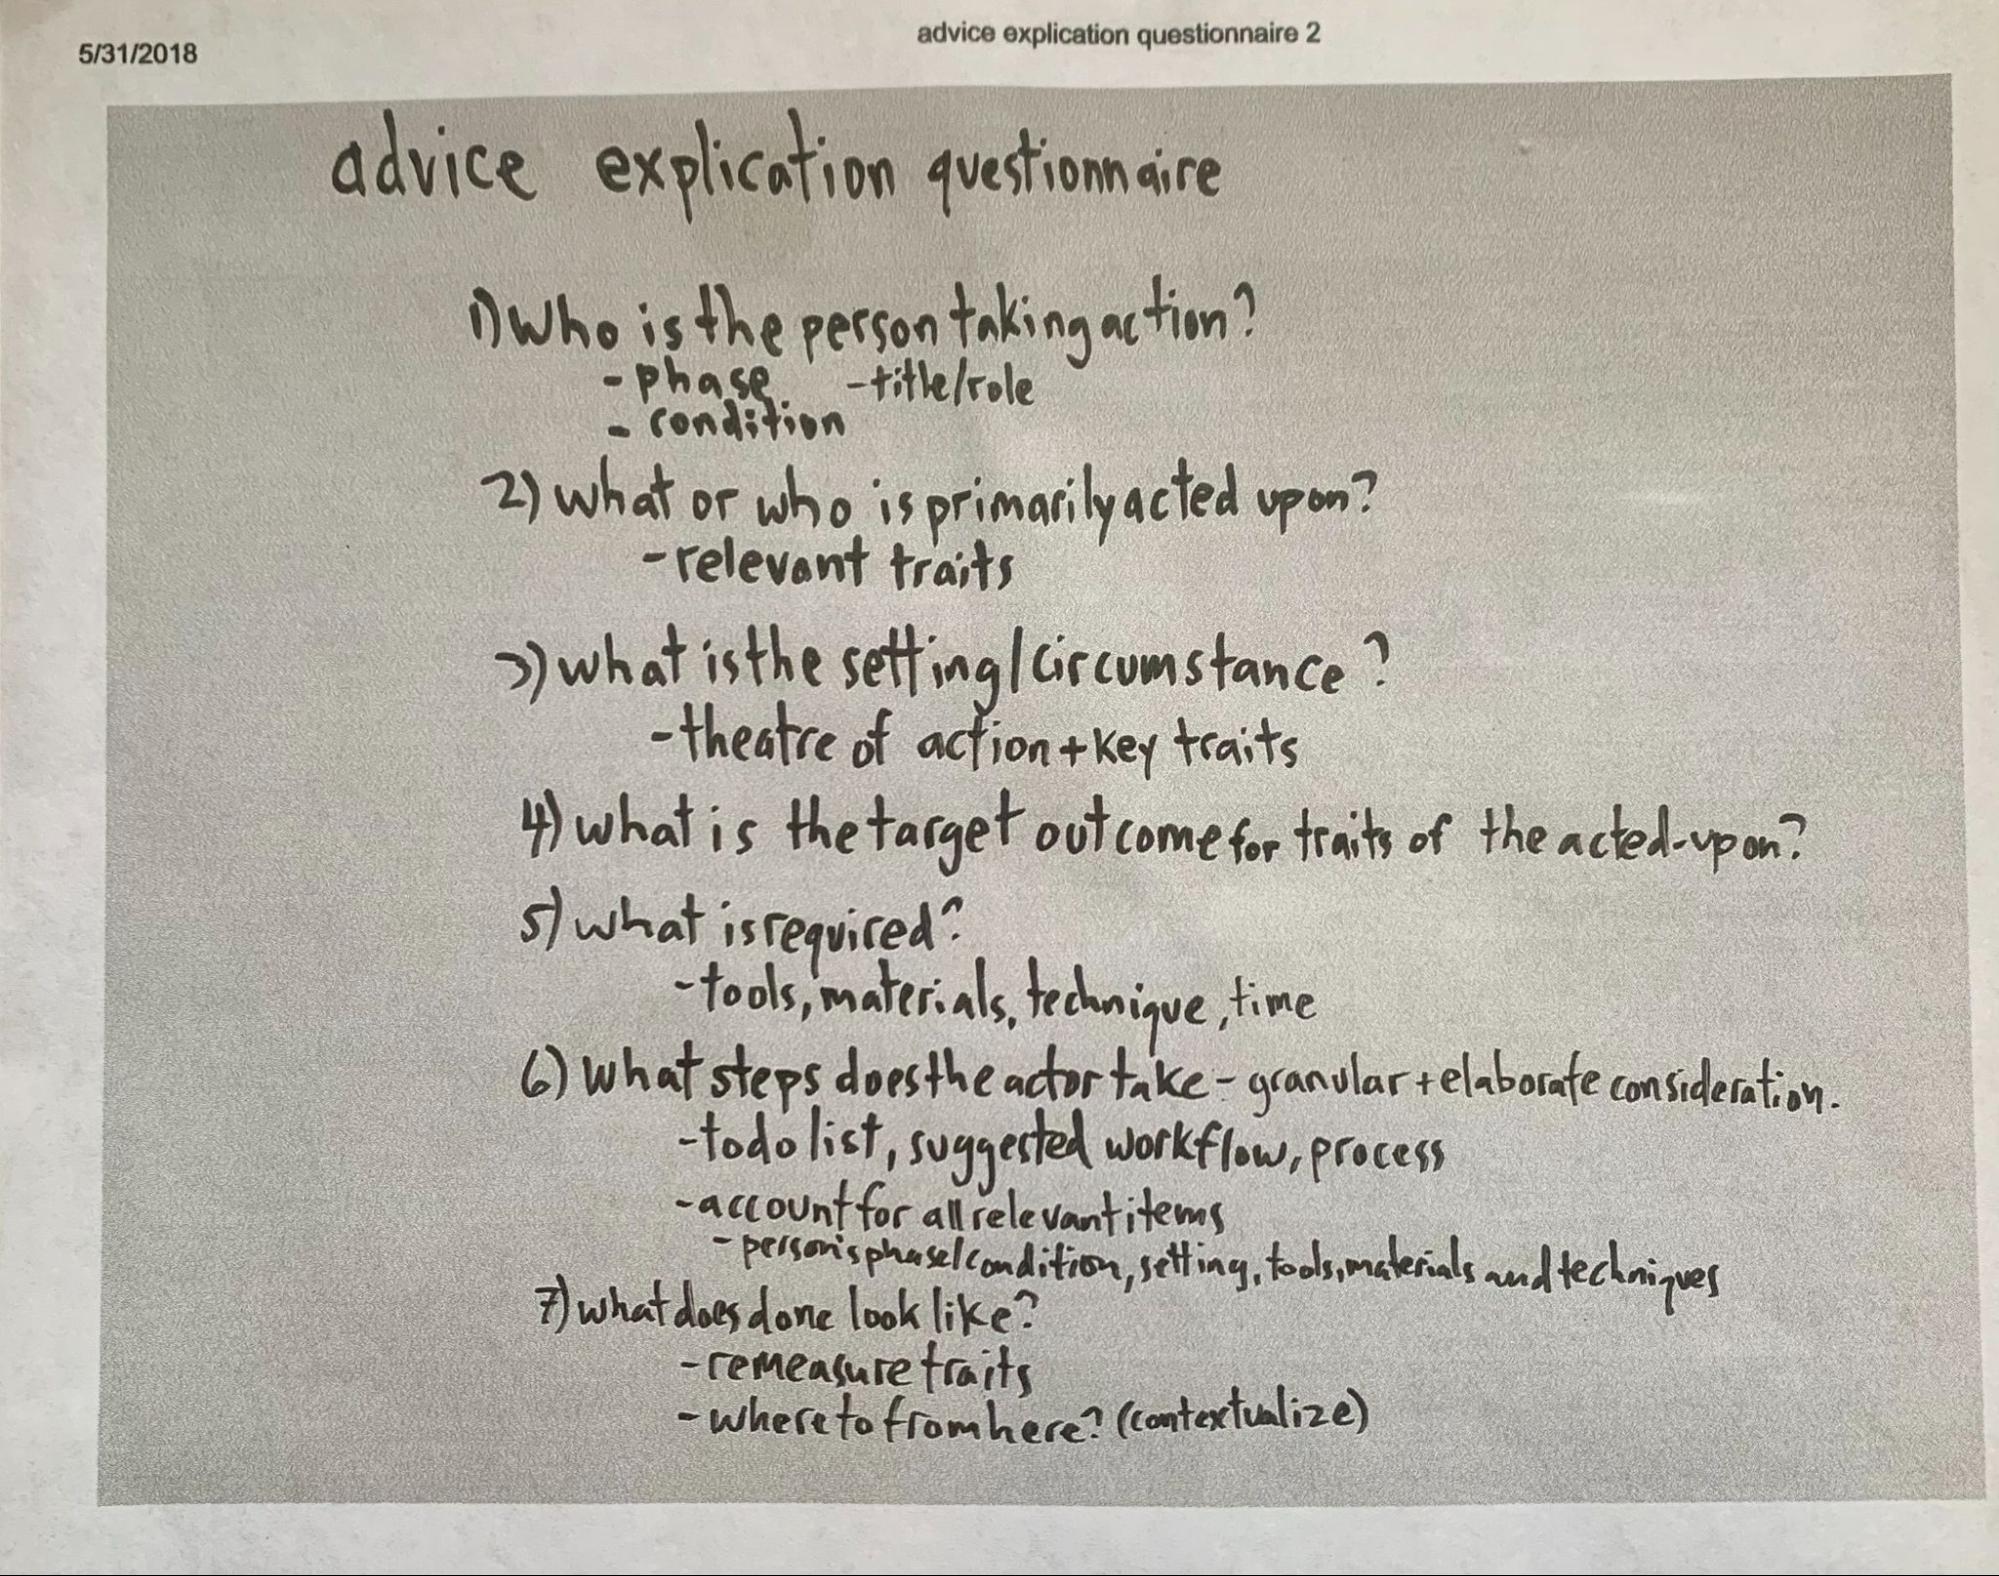 5/31/2018
advice explication questionnaire 2
advice explication questionnaire
1) Who is the person taking action?
- phase - title/role
- condition
2) what or who is primarily acted upon?
- relevant traits
3) what is the setting/circumstance?
- theatre of action + key traits
4) what is the target outcome for traits of the acted-upon?
5) what is required?
- tools, materials, technique, time
6) What steps does the actor take - granular + elaborate consideration.
- todo list, suggested workflow, process
- account for all relevant items
- person's phase/condition, setting, tools, materials and techniques
7) what does done look like?
- remeasure traits
- where to from here? (contextualize)